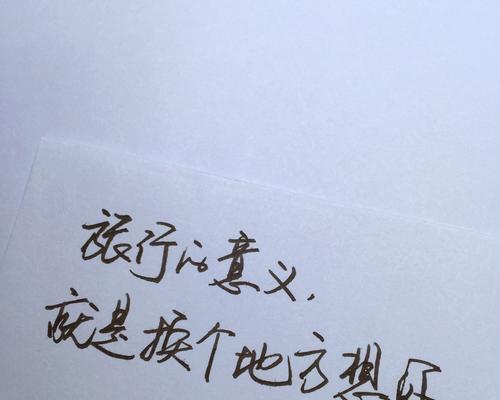 旅行的意义，
就是换个地方想